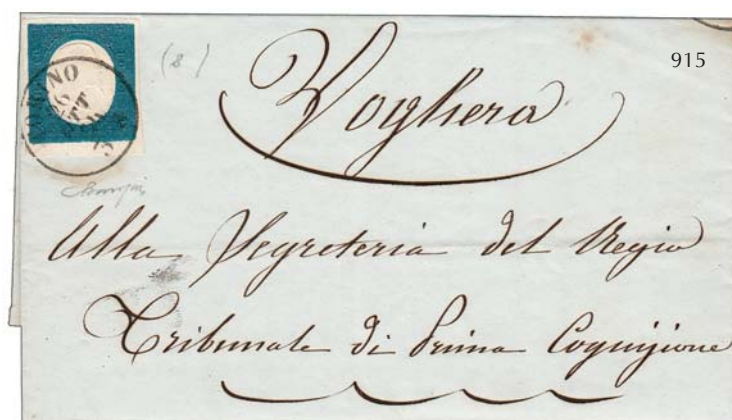 915
(8)
Voghera
Alla Segreteria del Regio
Tribunale di Prima Cognizione